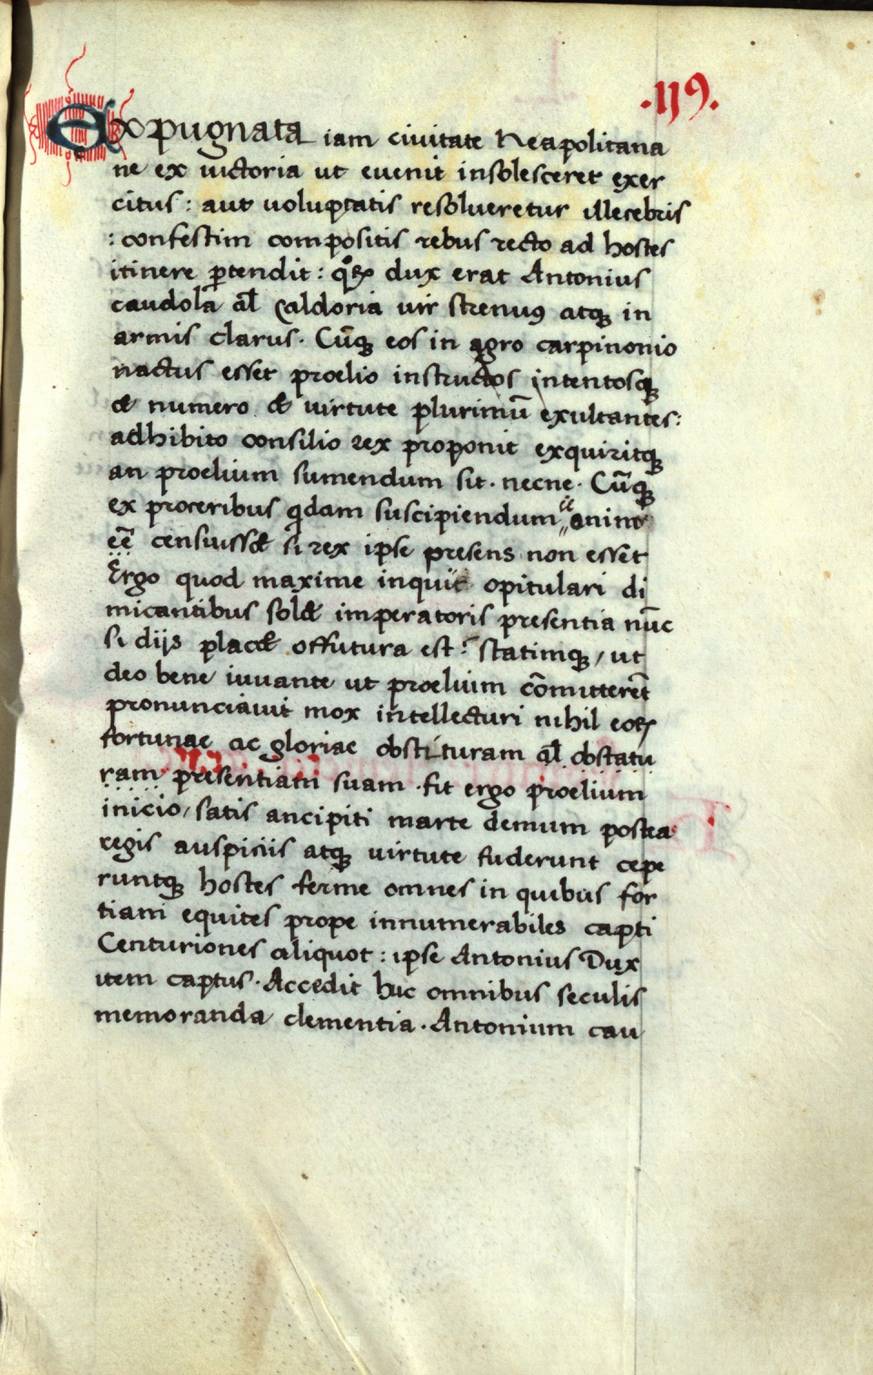 .119.
Expugnata iam ciuitate Neapolitana
ne ex uictoria ut euenit insolesceret exer
citus: aut uoluptatis resolueretur illecebris
: confestim compositis rebus recto ad hostes
itinere ꝑtendit: qoꝝ dux erat Antonius
caudola al̄ Caldoria uir strenuꝯ atqꝫ in
armis clarus. Cūqꝫ eos in agro carpinonio
nactus esset proelio instructos intentosqꝫ
& numero & uirtute plurimū exultantes:
adhibito consilio rex proponit exquiritqꝫ
an proelium sumendum sit. necne. Cūqꝫ
ex proceribus qdam suscipiendum
eē censuiss& si rex ipse presens non esset
Ergo quod maxime inquit opitulari di
micantibus sol& imperatoris presentia nūc
si dijs plac& offutura est? statimqꝫ / ut
deo bene iuuante ut proelium cōmitterēt
pronunciauit mox intellecturi nihil eoꝝ
fortunae ac gloriae obstituram ql̄ obstatu
ram presentiam suam. fit ergo proelium
inicio / satis ancipiti marte demum postea
regis auspiciis atqꝫ uirtute fuderunt cepe
runtqꝫ hostes ferme omnes in quibus for
tiam equites prope innumerabiles capti
Centuriones aliquot: ipse Antonius Dux
item captus. Accedit huc omnibus seculis
memoranda clementia. Antonium cau